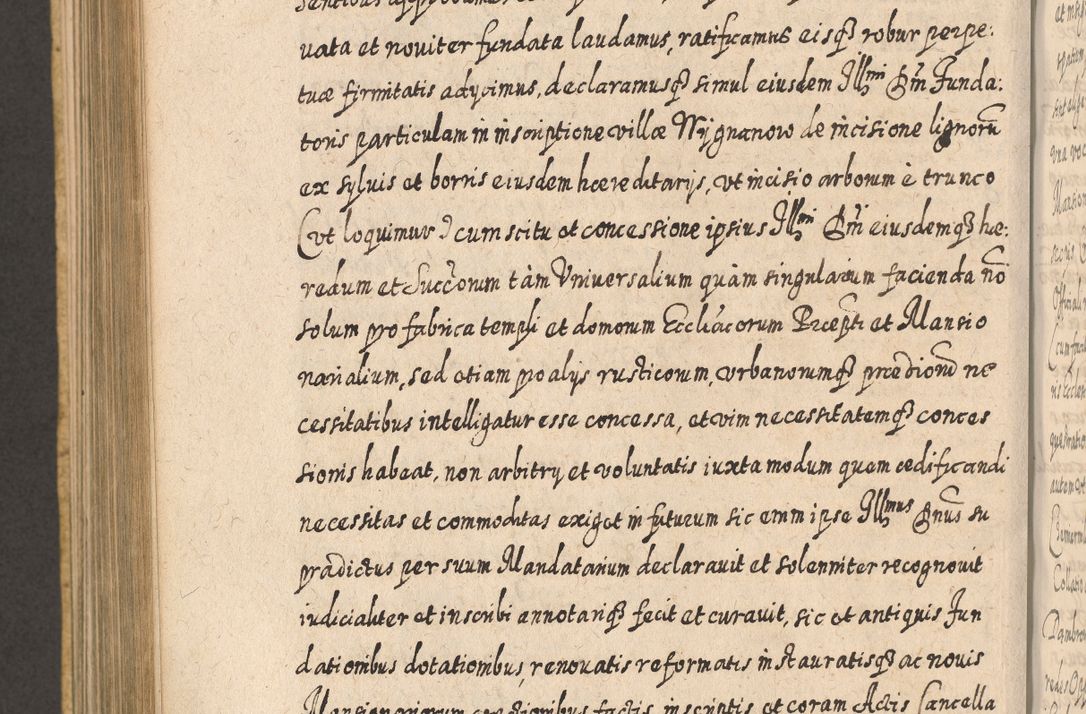 uata et nouiter fundata laudamus, ratificamus eisq3 robur perpe:
tuæ firmitatis adycimus, declaramusq3 simul eiusdem Illmi Dni Funda:
toris particulam in inscriptione villæ Wygnanow de incisione lignorũ
ex syluis et borris eiusdem hæreditarijs, vt incisio arborum è trunco
(vt loquimur) cum scitu et concessione ipsius Illmi Dni eiusdemq3 hæ:
redum et Succorum tàm Vniuersalium quàm singularium facienda nõ
solum pro fabrica templi et domorum Eccliacorum Præpti et Mansio
narialium, sed etiam pro alijs rusticorum, vrbanorumq3 prædiorũ ne
cessitatibus intelligatur esse concessa, et vim necessitatemq3 conces
sionis habeat, non arbitry et voluntatis iuxta modum quem ædificandi
necessitas et commoditas exiget in futurum sic enim ipse Illmus Dnus su
prædictus per suum Mandatarium declarauit et solenniter recognouit
iudicialiter et inscribi annotariq3 fecit et curauit, sic et antiquis Fun
dationibus dotationibus, renouatis reformatis instauratisq3 ac nouis
Mansionariorum erectionibus factis inscriptis et coram Actis Cancella